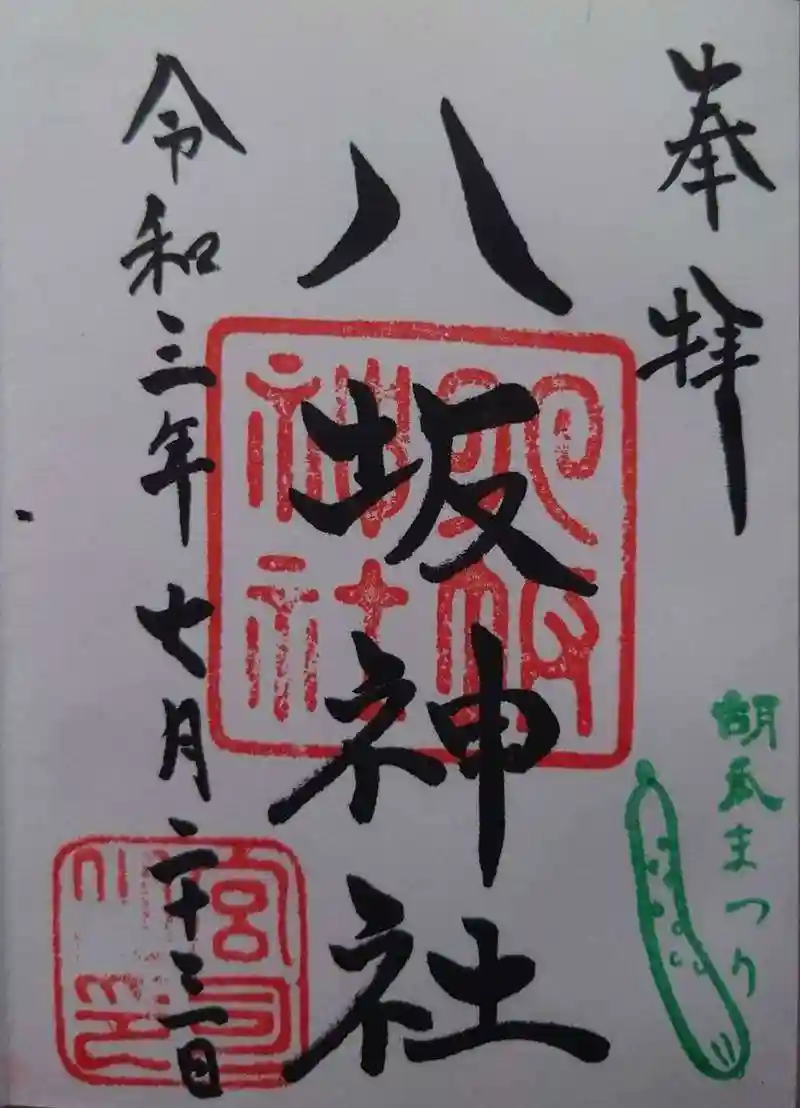 奉拝
胡瓜まつり
八坂神社
八坂神社
令和三年七月二十三日